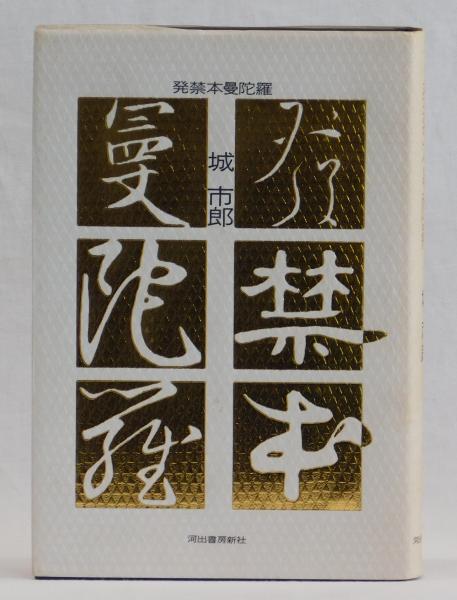 発禁本曼陀羅
城市郎
発禁本
曼陀羅
河出書房新社